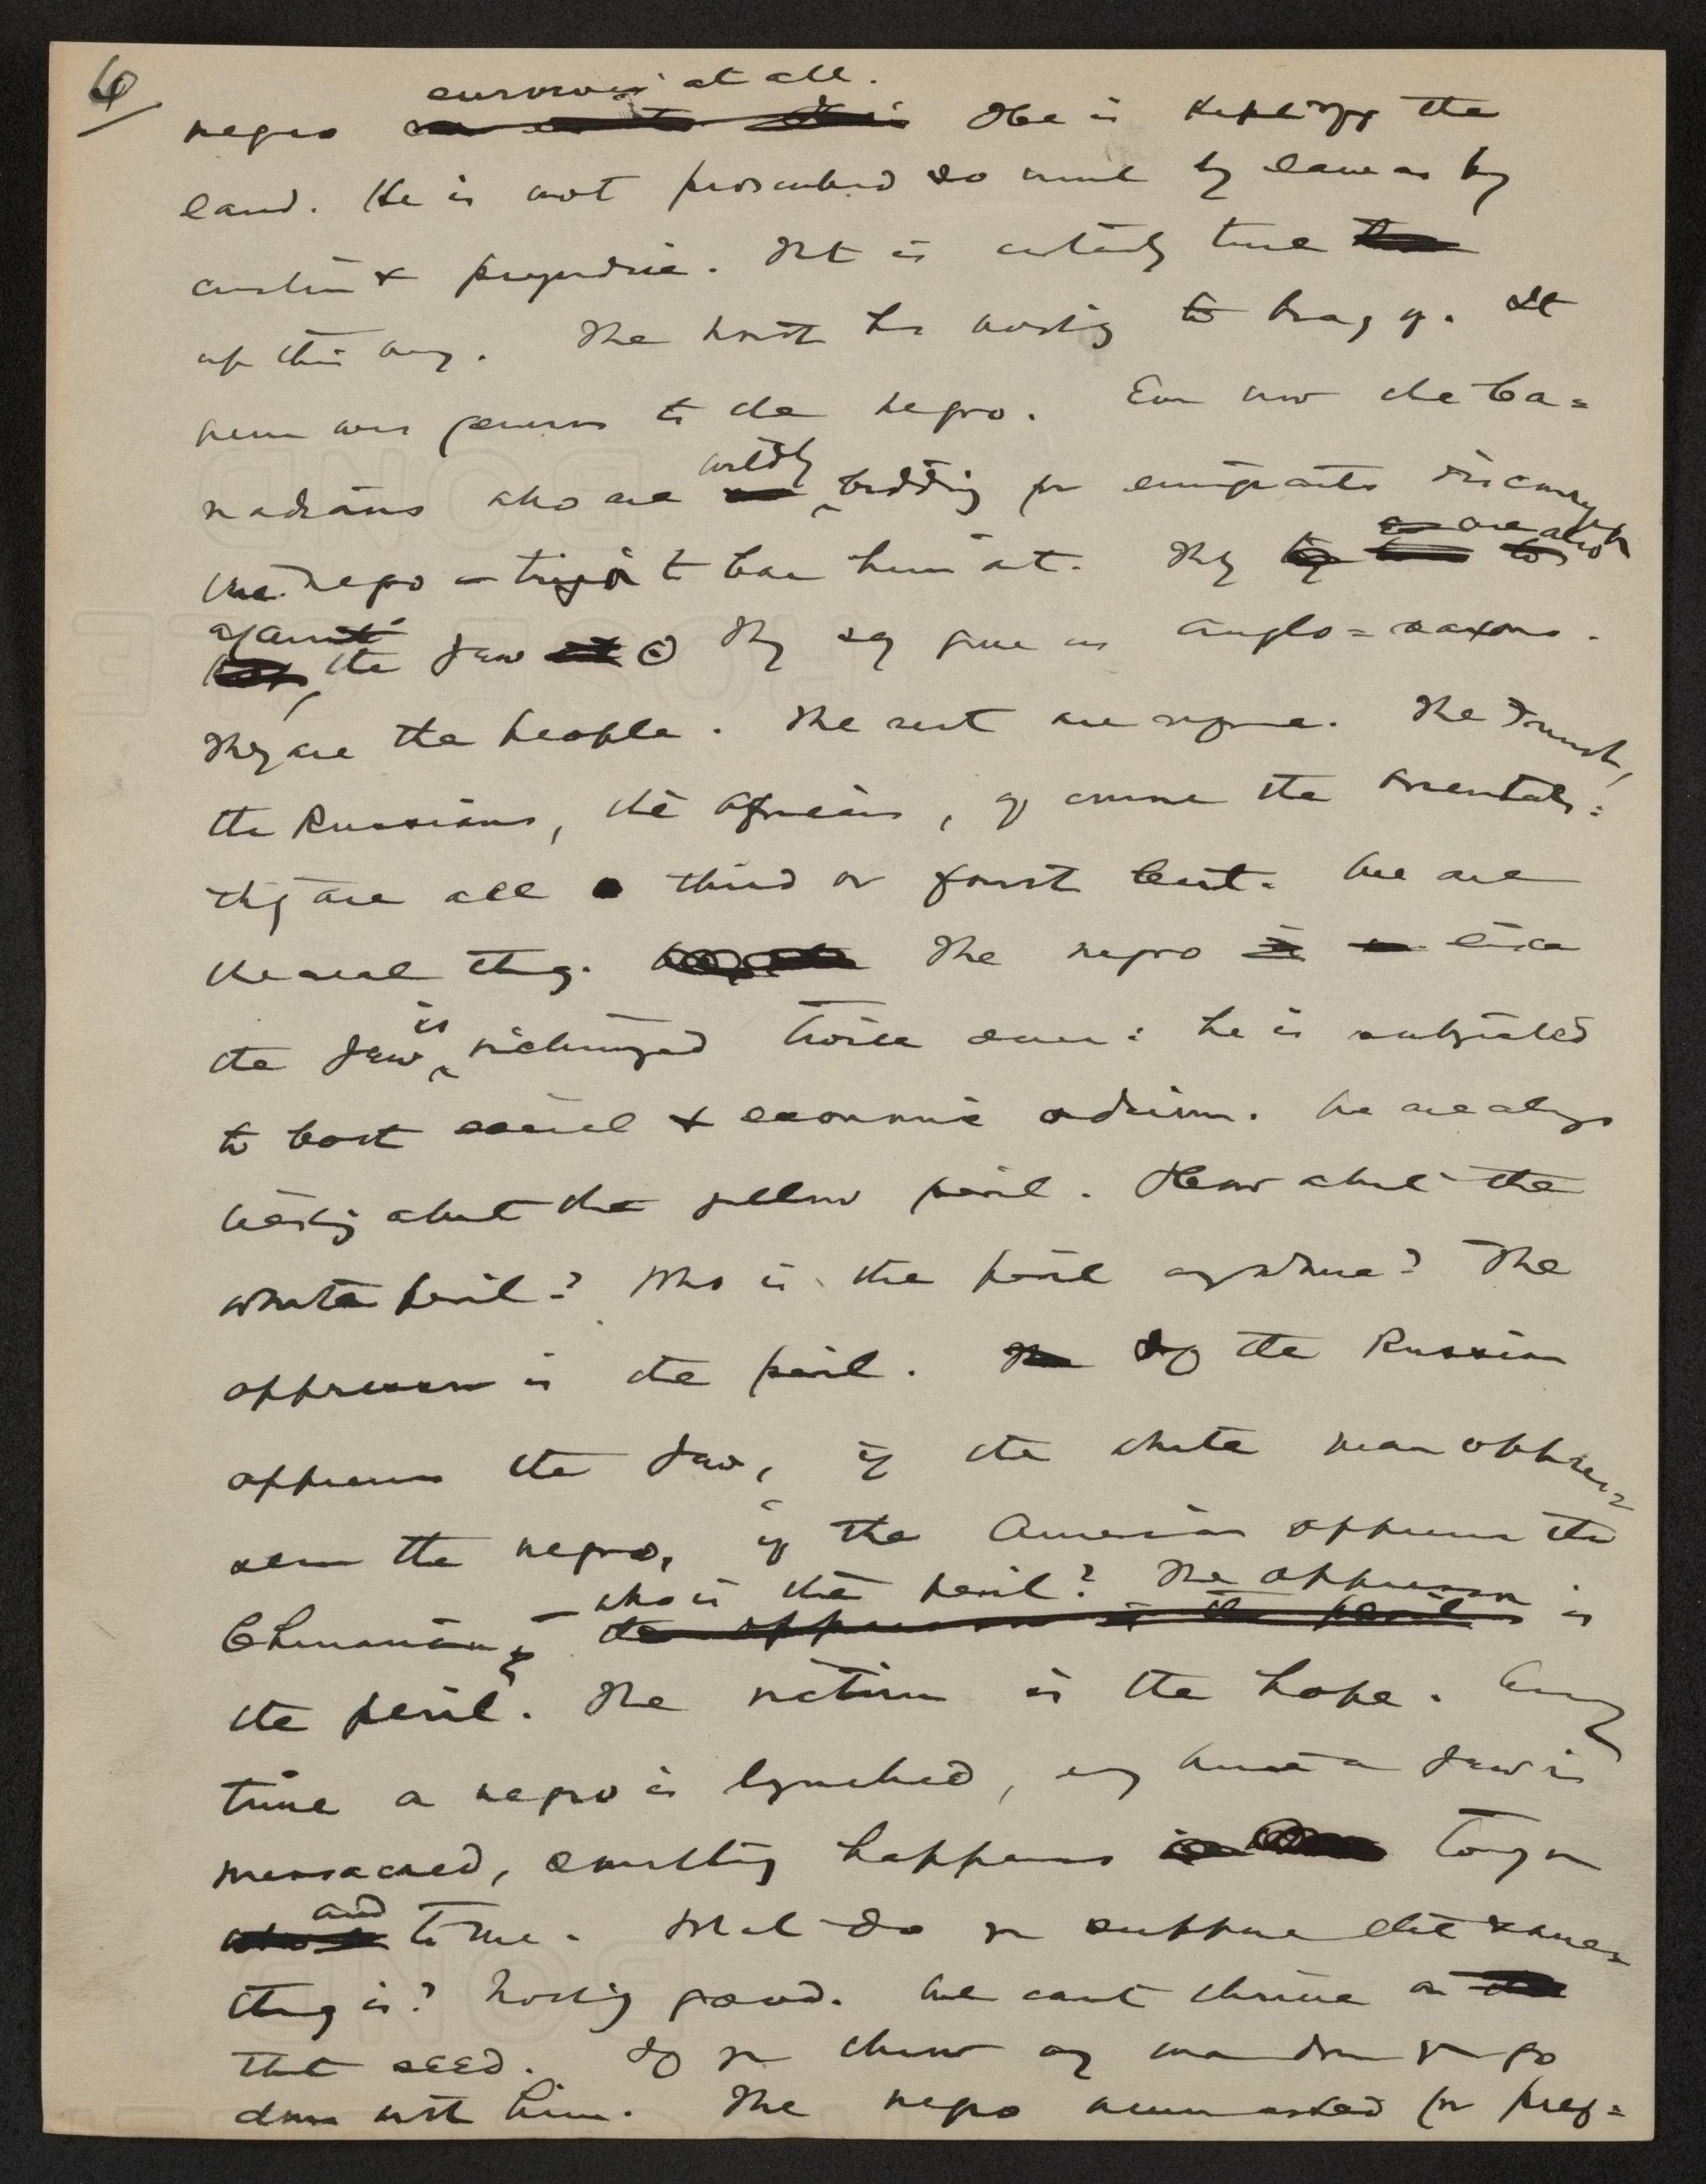 6
survives at all.
negro He is kept off the
land. He is not proscribed so much by law as by
custom & prejudice. That is certainly true
up this way. The north has nothing to brag of. It
never was generous to the negro. Even now the Ca=
nadians who are wildly bidding for emigrants discourage
the negro — trying to bar him out. They are also
against the Jew. They say give us anglo=saxons.
They are the people. The rest are refuse. The French,
the Russians, the Africans, of course the orientals:
they are all third or fourth best. We are
the real thing. The negro like
the Jew is victimized twice over: he is subjected
to both social & economic odium. We are always
hearing about the yellow peril. How about the
white peril? Who is the peril anywhere? The
oppressor is the peril. If the Russian
oppresses the Jew, if the white man oppres=
ses the negro, if the American oppresses the
Chinaman — who is the peril? The oppressor is
the peril. The victim is the hope. Every
time a negro is lynched, every time a Jew is
massacred, something happens to you
and to me. What do you suppose that same
thing is? Nothing good. We cant thrive on
that seed. If you throw any man down you go
down with him. The negro never asked for pref=